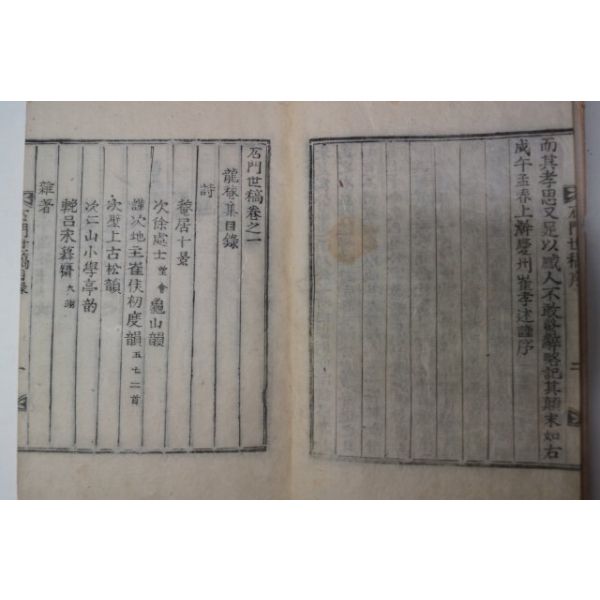 而其孝思又足以感人不敢終辭略記其顚末如右
戊午孟春上澣慶州崔孝述謹序
石門世稿序
二
石門世稿卷之一
龍菴集目錄
詩
菴居十景
次徐處士 龜山韻
謹次地主崔侯初度韻 五七二首
次壁上古松韻
次仁山小學亭韵
輓呂宋 齋
雜著
石門世稿目錄
一